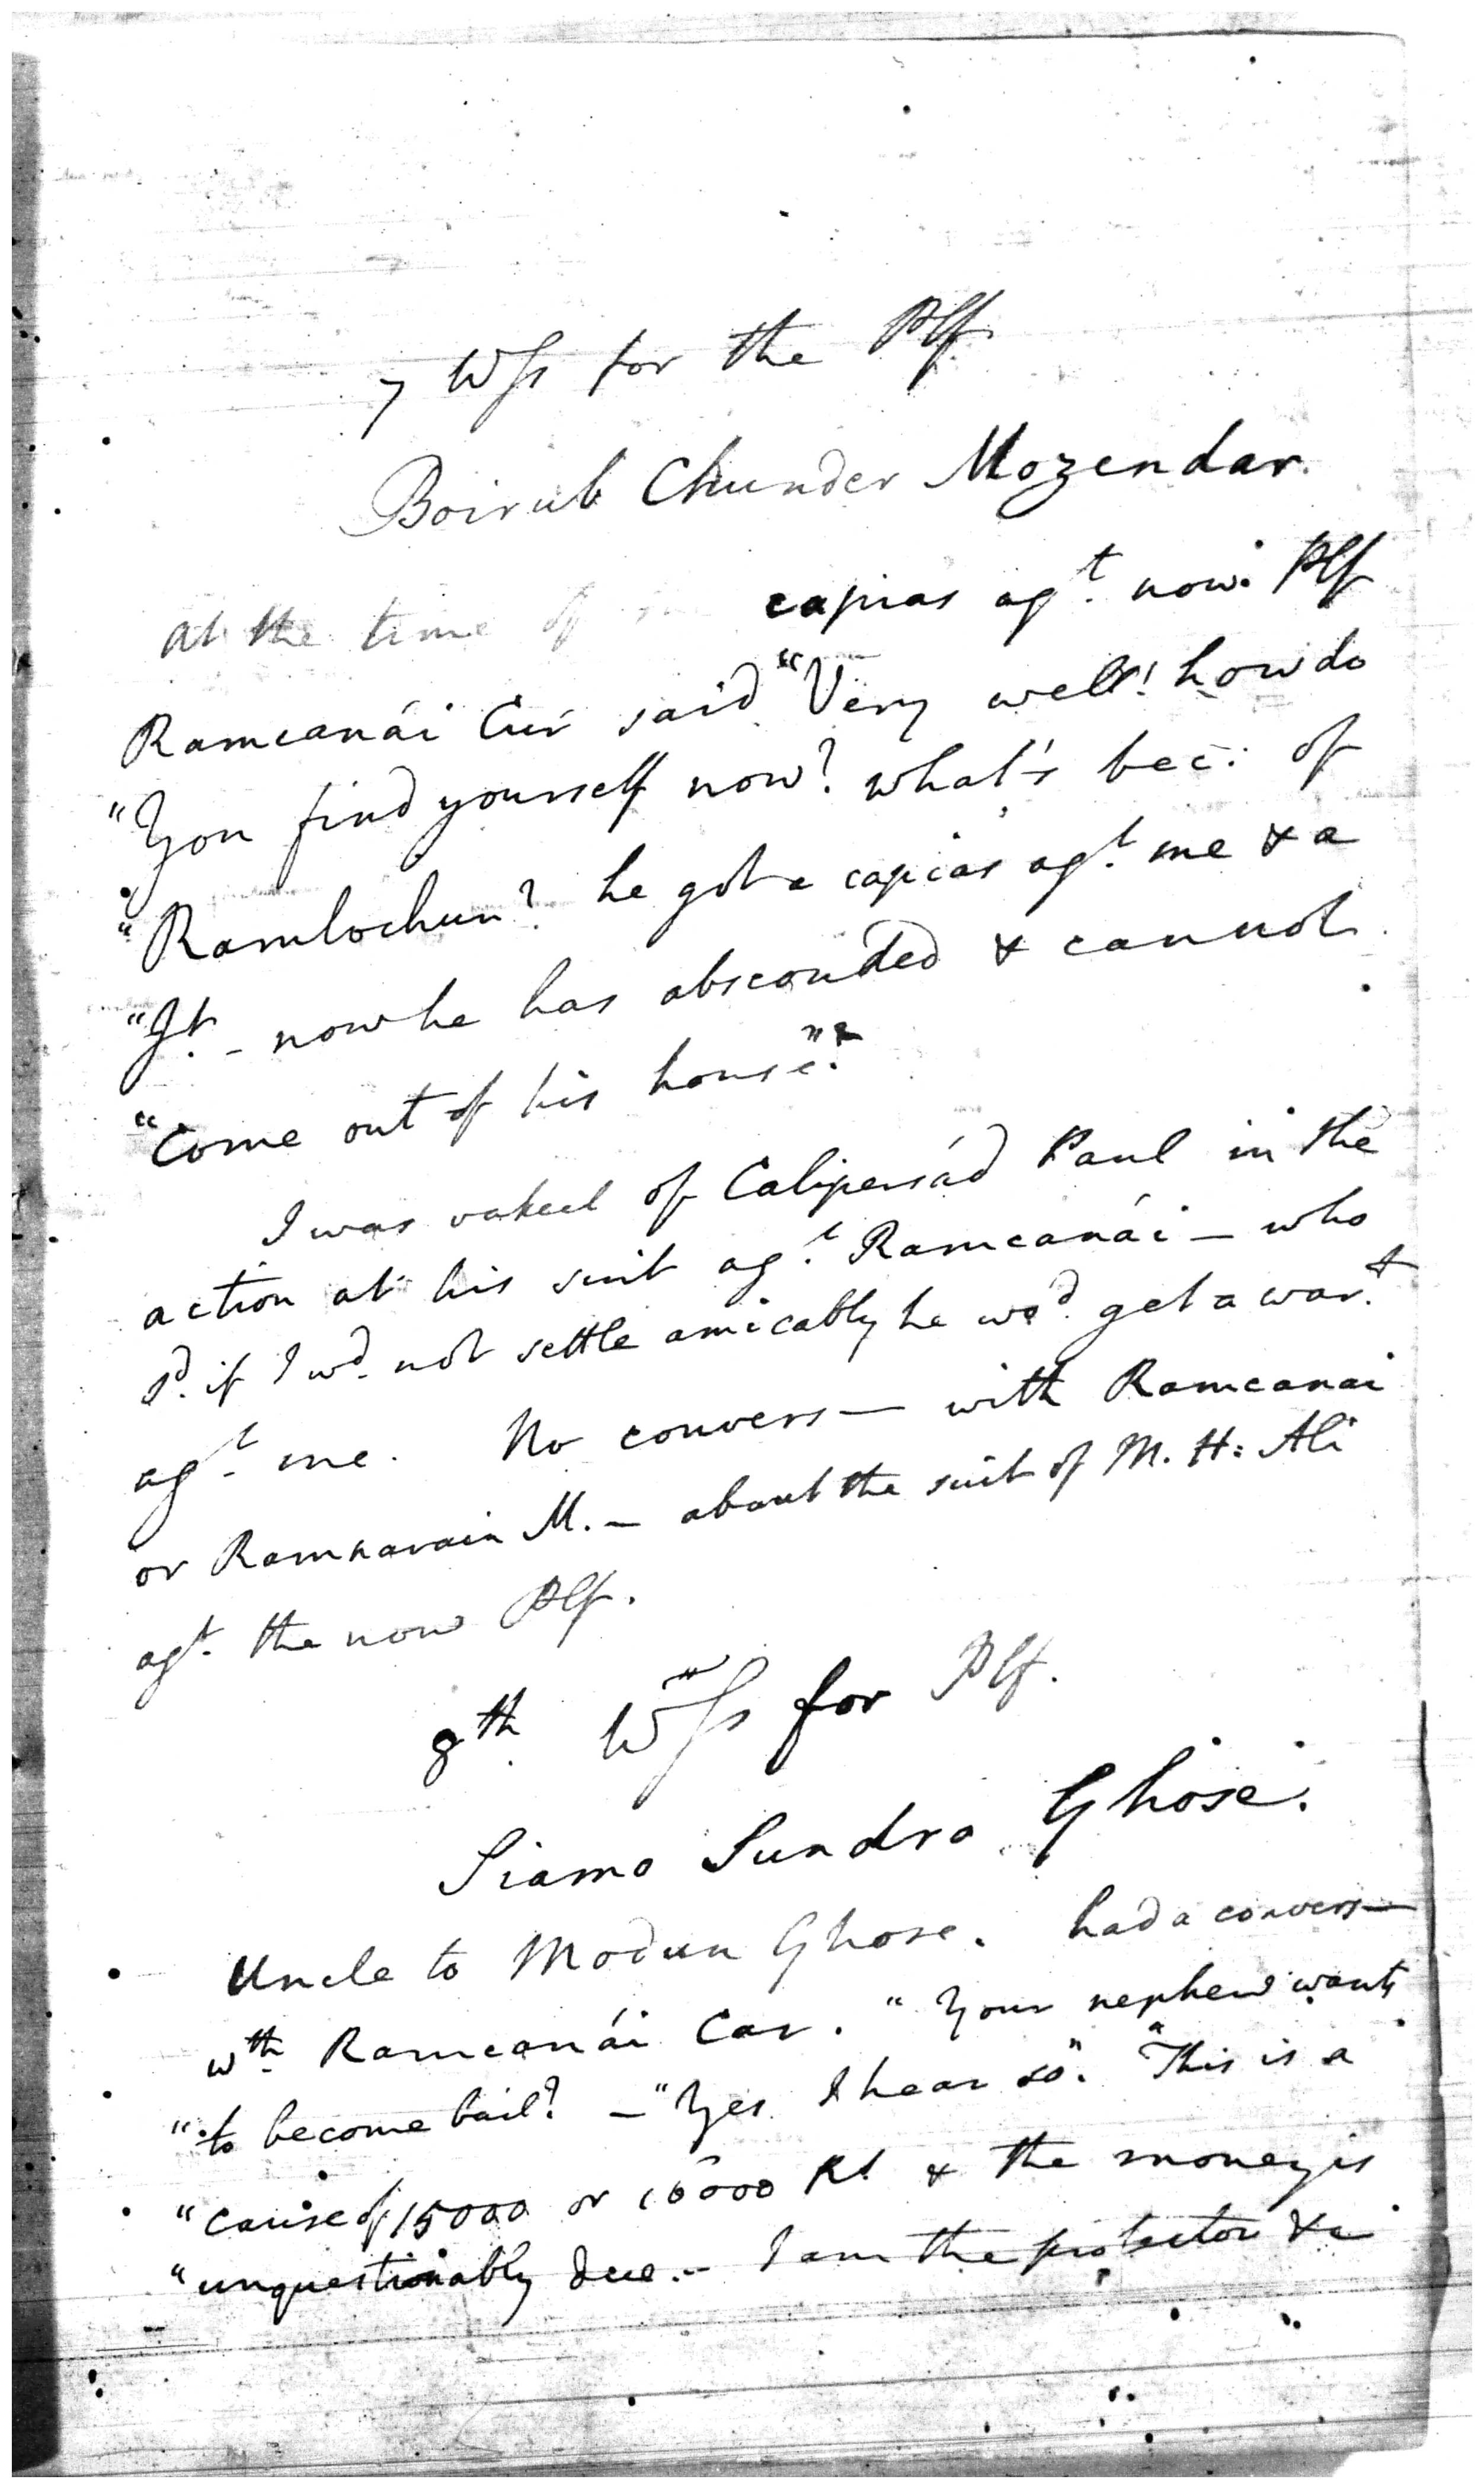 7 Wſs for the Plf.
Boirub Chunder Mozendar.
At the time of capias agt. now Plf
Ramcanái Cur said "Very well! how do
"You find yourself now? what's bec: of
"Ramlochun? he got a capias agt. me & a
"Jt. - now he has absconded & cannot
"Come out of his house".
I was vakeel of Calipersád Paul in the
action at his suit agt. Ramcanái — who
sd. if I wd. not settle amicably he wod. get a wart.
agt. me. No convers— with Ramcanai
or Ramnarain M. — about the suit of M. H: Ali
agt. the now Plf.
8th. Wſs for Plf.
Siama Sundra Ghose.
Uncle to Modun Ghose. had a convers—
wth. Ramcanái Car. "Your nephew wants
"to become bail? — "Yes I hear so". "This is a
"cause of 15000 or 16000 Rs & the money is
"unquestionably due. - I am the protector &c